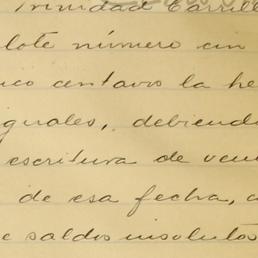 Trinidad Carrill
lote número cin
nco centavo la he
iguales, debiend
escritura de ven
de esa fecha, a
e saldos insolutos